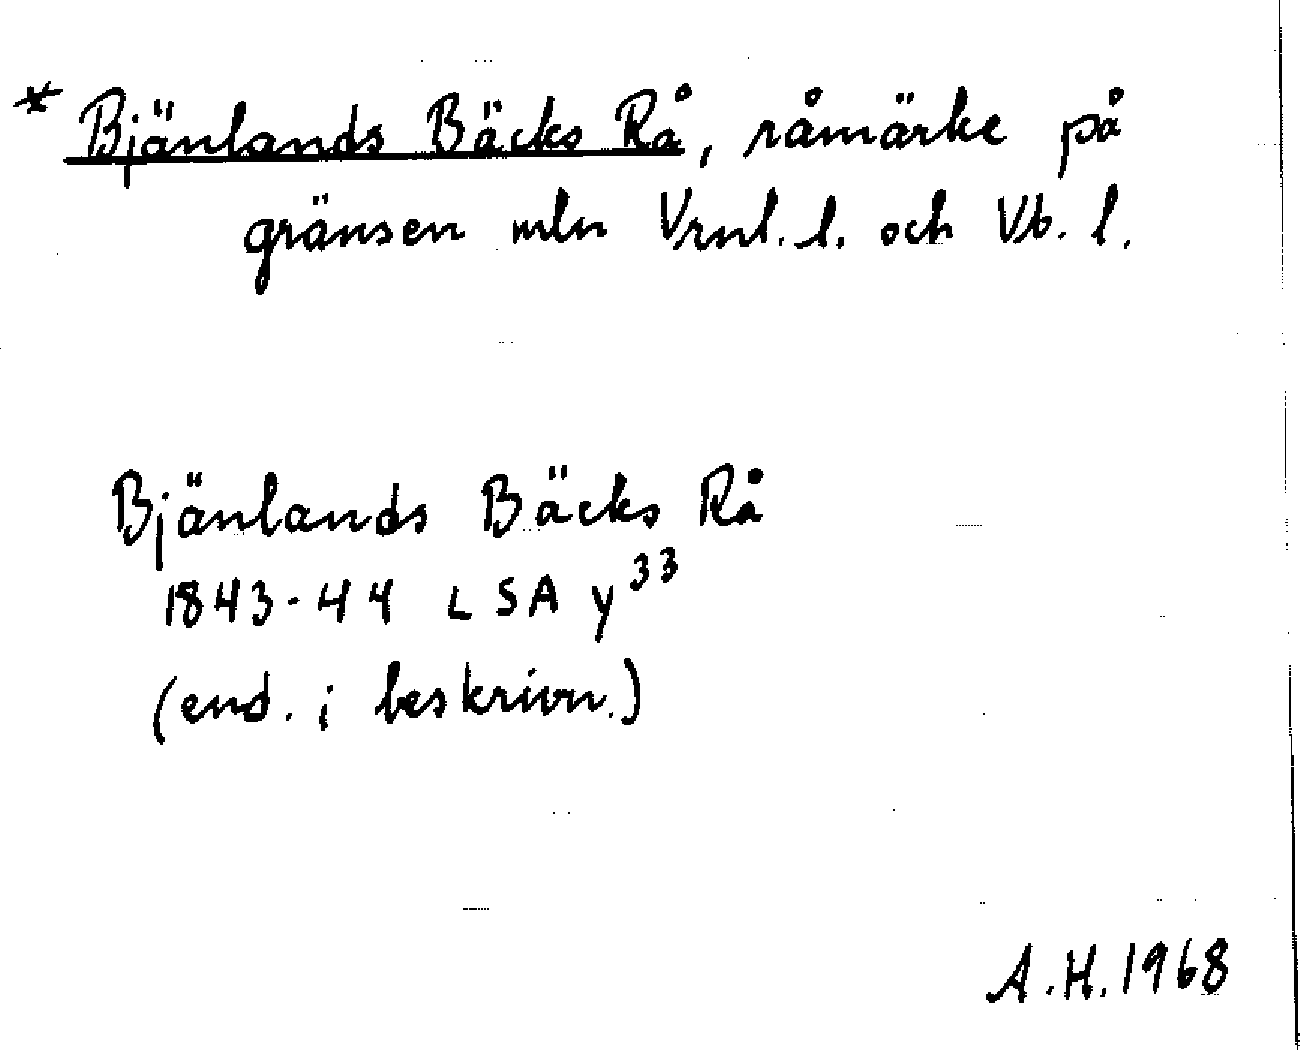 * Bjänlands Bäcks Rå, råmärke på
gränsen mln Vrml. l. och Vb. l.
Bjänlands Bäcks Rå
1843-44 LSA y³³
(end. i beskrivn.)
A.H. 1968